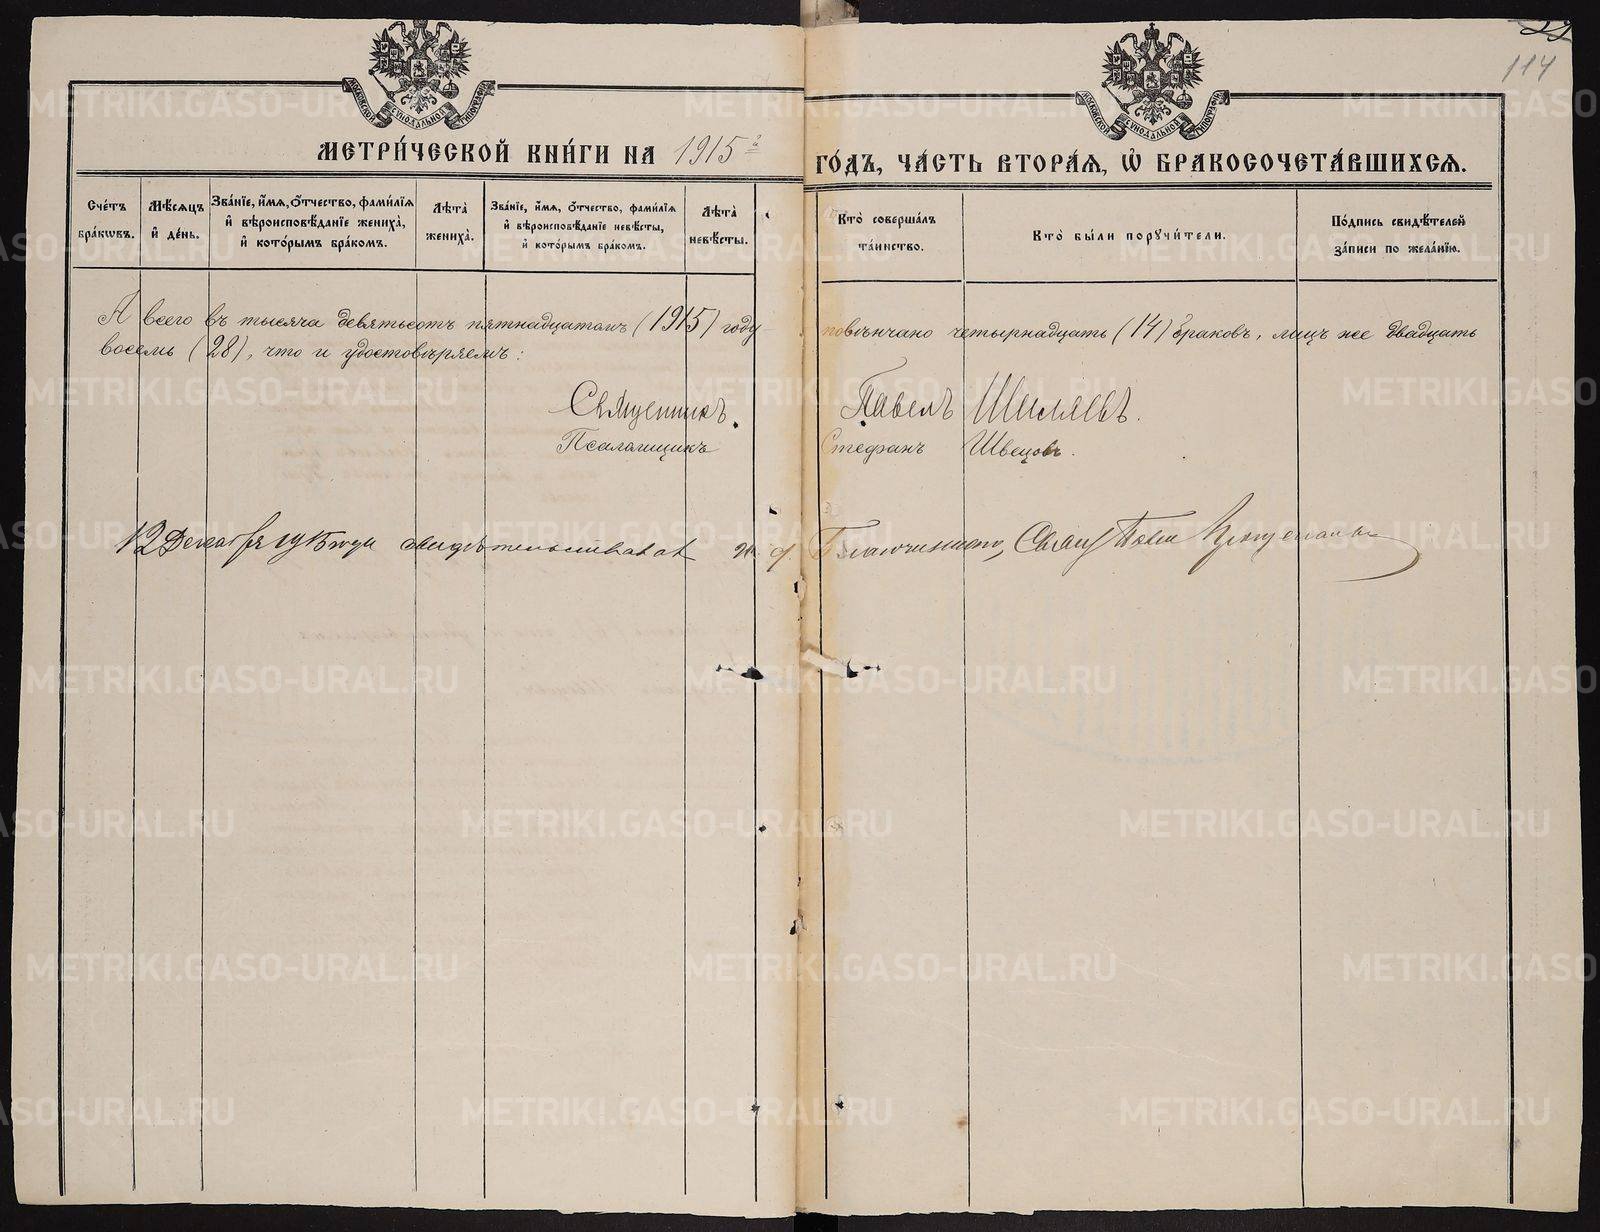 114
МОСКОВСКОЙ СУНОДАЛЬНОЙ ТИПОГРАФІИ
МОСКОВСКОЙ СУНОДАЛЬНОЙ ТИПОГРАФІИ
МЕТРИ́ЧЕСКОЙ КНИ́ГИ НА 1915 г. ГО́ДЪ, ЧА́СТЬ ВТОРА́Я, Ѡ҆ БРАКОСОЧЕТА́ВШИХСЯ.
Сче́тъ бра́кѡвъ.
Мѣ́сяцъ и҆ де́нь.
Зва́нїе, и҆́мя, ѻ҆́тчество, фами́лїя и҆ вѣроисповѣ́данїе жениха̀, и҆ кото́рымъ бра́комъ.
Лѣ́та̀ жениха̀.
Зва́нїе, и҆́мя, ѻ҆́тчество, фами́лїя и҆ вѣроисповѣ́данїе невѣ́сты, и҆ кото́рымъ бра́комъ.
Лѣ́та̀ невѣ́сты.
Кто̀ соверша́лъ та́инство.
Кто̀ бы́ли порꙋчи́тели.
По́дпись свидѣ́телей за́писи по жела́нїю.
А всего въ тысяча девятьсотъ пятнадцатомъ (1915) году повѣнчано четырнадцать (14) браковъ, лицъ же двадцать
восемь (28), что и удостовѣряемъ:
Священникъ Павелъ Шиляевъ.
Псаломщикъ Стефанъ Швецовъ.
12 Декабря 1915 года свидѣтельствовалъ и. д. Благочиннаго, Свящ Павел